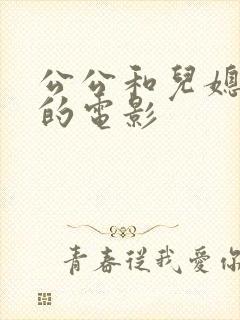 公公和兒媳
的電影
青春從我愛你